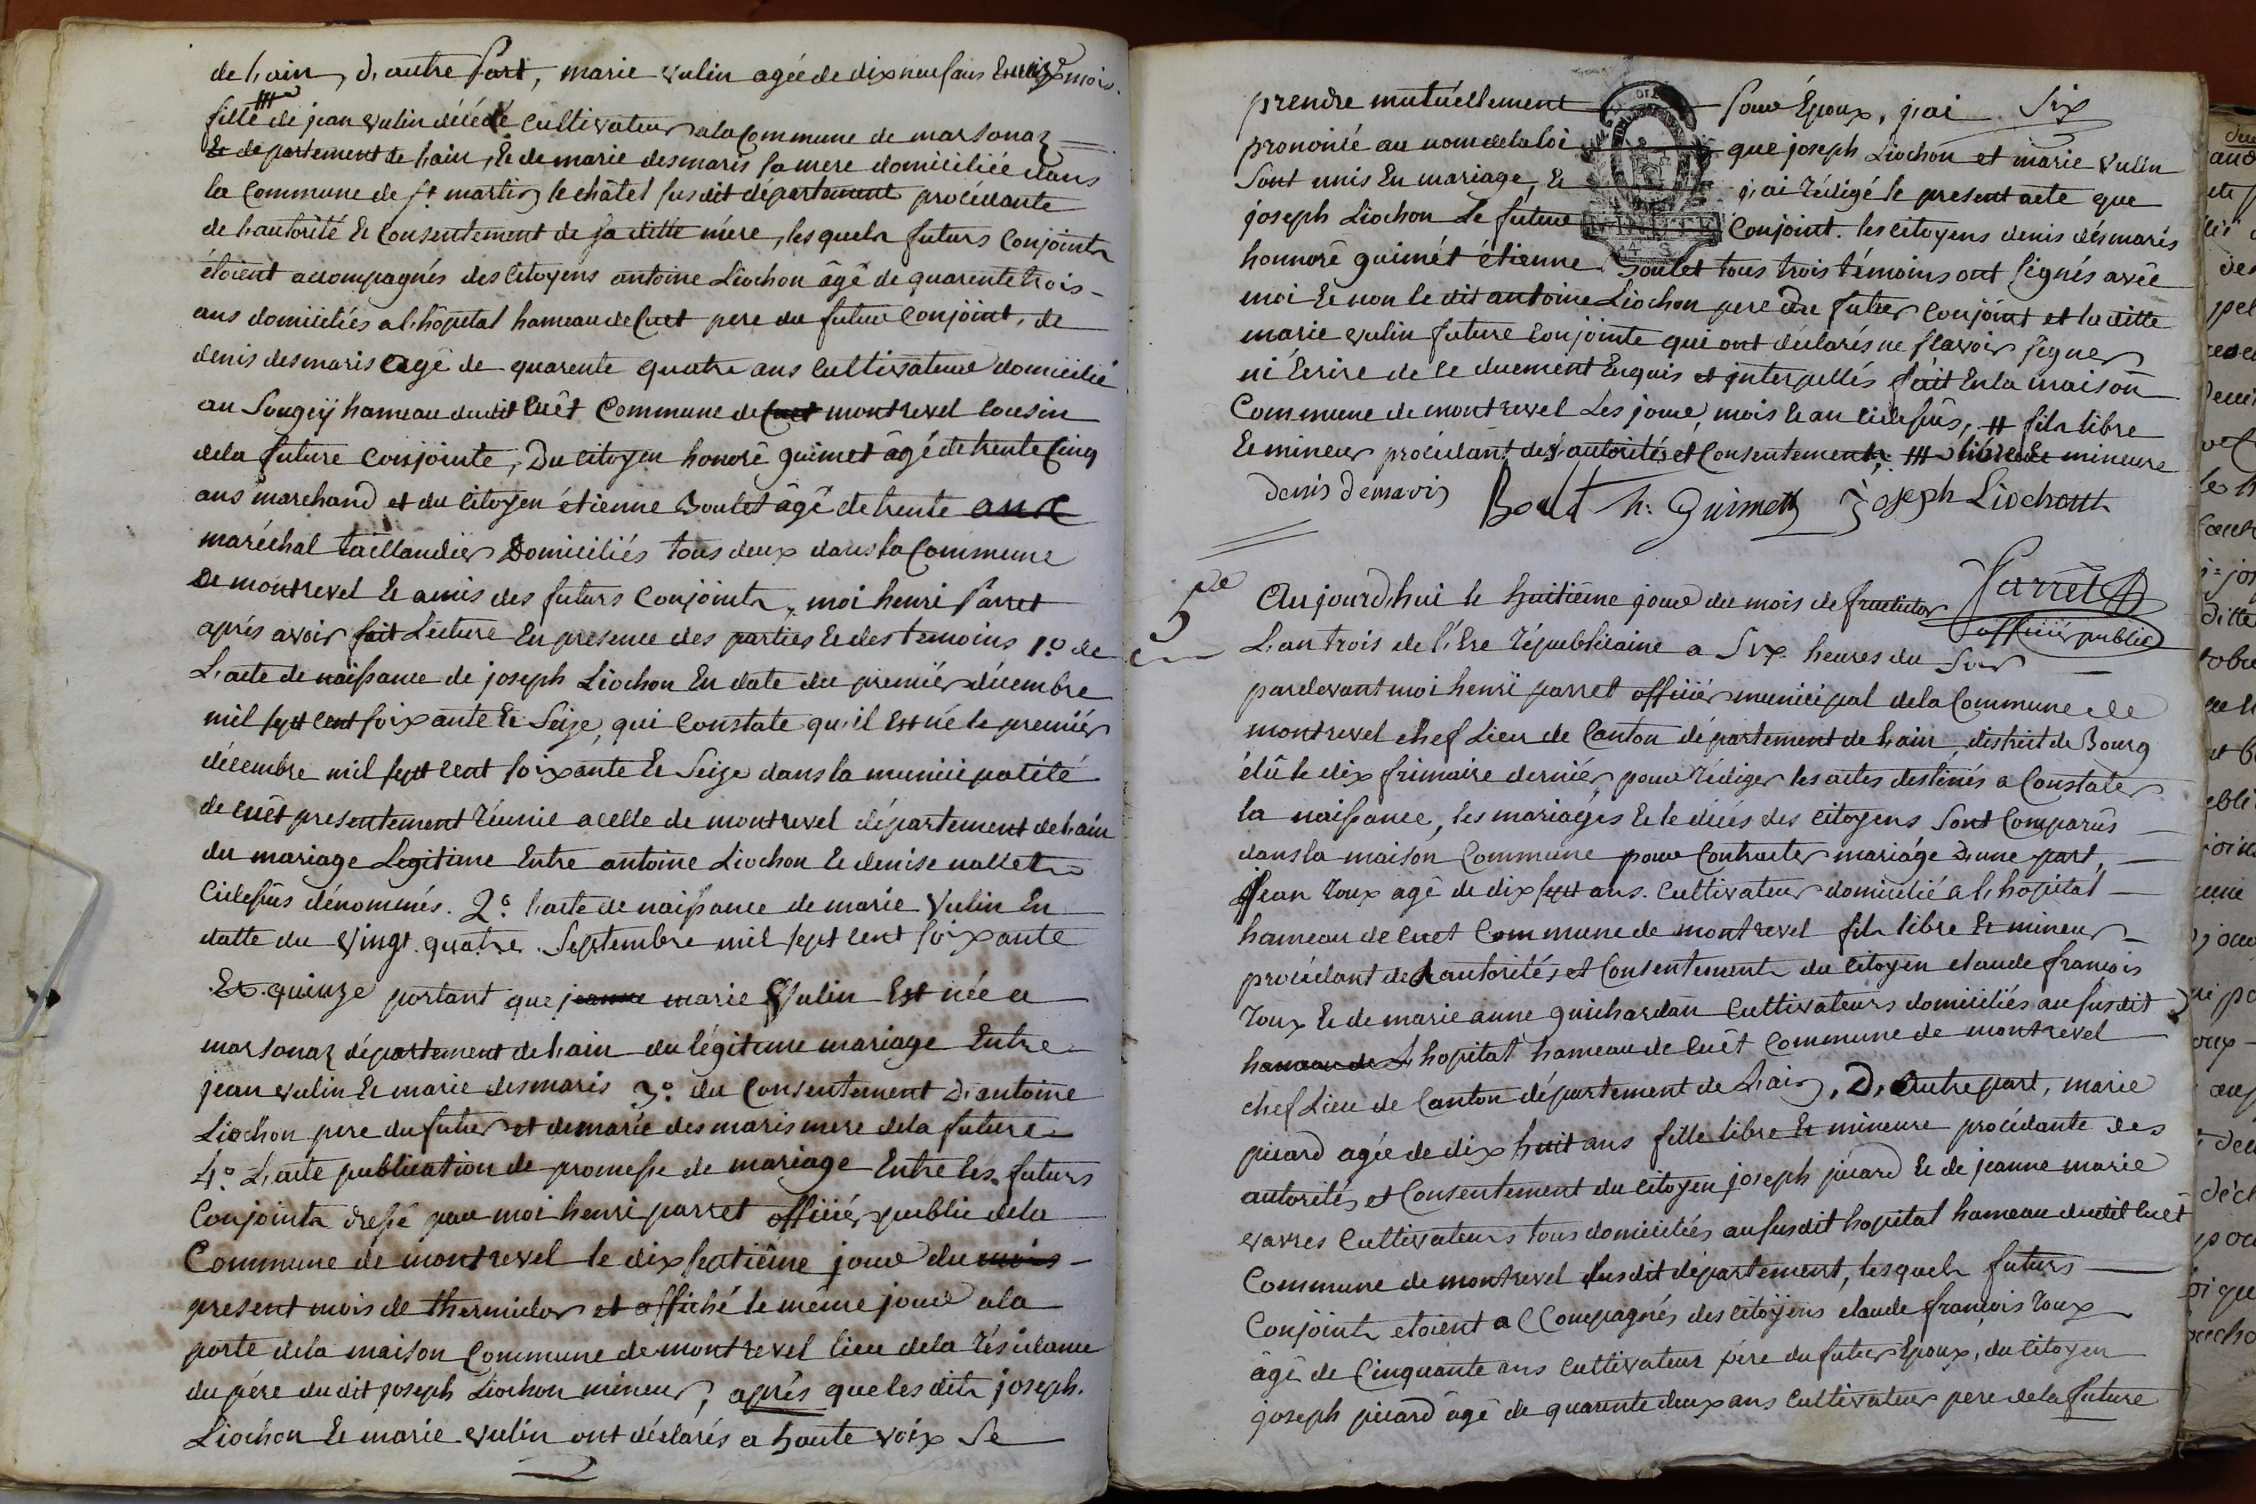 de l,ain, d,autre part, marie vulin agée de dix neuf ans mois.
fille /// de jean vulin décédé cultivateur a la Commune de marsonaz
département de l,ain, & de marie desmaris sa mere domiciliée dans
la Commune de st martin le châtel susdit département procédante
de l,autorité & Consentement de sa ditte mére, lesquels futurs Conjoints
étoient accompagnés des Citoyens antoine Liochon âgé de quarente trois
ans domiciliés a l,hôpital hameau de Cuet pere du futur Conjoint, de
denis desmaris agé de quarente quatre ans Cultivateur domicilié
au Sougeÿ hameau dudit Cuêt Commune de Cuet montrevel Cousin
de la future Conjointe, Du Citoyen honoré guimet âgé de trente Cinq
ans marchand et du Citoyen étienne Boulet âgé de trente ans
maréchal taillandier Domiciliés tous deux dans la Commune
De montrevel & amis des futurs Conjoints, moi henri parret
aprés avoir fait Lecture En presence des parties & des temoins 1.o de
L,acte de naissance de joseph Liochon En date du premiér décembre
mil sept cent soixante & Seize, qui Constate qu,il Est né le premiér
décembre mil sept cent soixante & Seize dans la municipalité
de Cuêt presentement réunie a celle de montrevel département de l,ain
du mariage Legitime Entre antoine Liochon & denise vallet
Cidessus dénommés. 2.o L,acte de naissance de marie Vulin En
datte du vingt quatre Septembre mil sept cent soixante
Et quinze portant que jeanne marie Vulin Est née a
marsonaz département de l,ain du légitime mariage Entre
jean vulin & marie desmaris 3.o du Consentement d,antoine
Liochon pere du futur et de marie desmaris mere de la future
4.o L,acte publication de promesse de mariage Entre les futurs
Conjoints dressé par moi henri parret officiér public de la
Commune de montrevel le dix septiême jour du mois
present mois de thermidor et affiché le même jour a la
porte de la maison Commune de montrevel lieu de la résidance
du pére dudit joseph Liochon mineur, aprés que lesdits joseph
Liochon & marie vulin ont déclarés a haute voix se
prendre mutuellement pour Époux, j,ai Six
prononcé au nom de la loi que joseph Liochon et marie vulin
Sont unis En mariage, & j,ai rédigé le present acte que
joseph Liochon le futur Conjoint. les Citoyens denis désmaris
honnoré guimét étienne Boulet tous trois témoins ont signés avéc
moi & non le dit antoine Liochon pere du futur Conjoint et la ditte
marie vulin future Conjointe qui ont déclarés ne sçavoir signer
ni Écrire de ce duement Enquis et interpellés fait En la maison
Commune de montrevel Les jour, mois & an Cidessus, # fils libre
& mineur procédant des autorités et Consentements, /// libre & mineure
denis demaris Boult h. Guimett Joseph Liochont
parret
officiér public
5.me
Aujourd,hui le huitiême jour du mois de fructidor
L,an trois de l,Ere républicaine a Six heures du Soir
pardevant moi henri parret officiér municipal de la Commune de
montrevel chef Lieu de Canton département de l,ain, district de Bourg
élû le dix frimaire derniér, pour rédiger les actes destinés a Constater
la naissance, les mariages & le décés des Citoyens Sont Comparûs
dans la maison Commune pour Contracter mariage D,une part,
Jean roux agé de dix sept ans. Cultivateur domicilié a l,hopital
hameau de Cuet Commune de montrevel fils libre & mineur
procédant des autorités et Consentements du Citoyen claude francois
roux & de marie anne guichardan Cultivateurs domiciliés au susdit
hameau de L,hopital hameau de Cuêt Commune de montrevel
chef Lieu de Canton département de L,ain, D,Autre part, marie
picard agée de dix huit ans fille libre & mineure procédante des
autorités et Consentement du Citoyen joseph picard & de jeanne marie
vavres Cultivateurs tous domiciliés au susdit hopital hameau dudit Cuêt
Commune de montrevel susdit département, lesquels futurs
Conjoints etoient a CCompagnés des Citoÿens claude françois roux
âgé de Cinquante ans Cultivateur pére du futur Epoux, du Citoyen
joseph picard âgé de quarente deux ans Cultivateur pere de la future